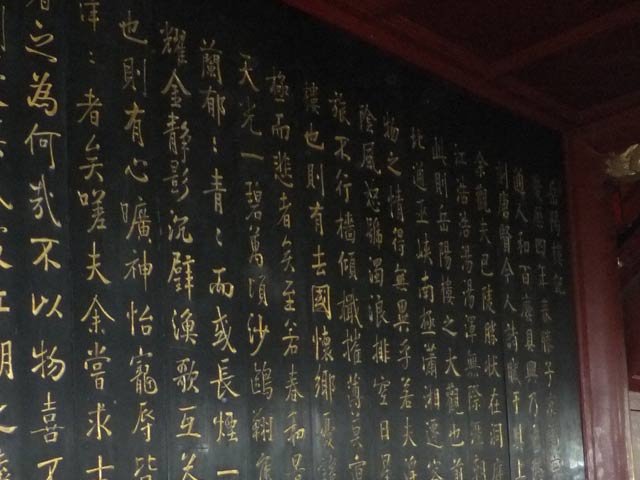 岳陽樓記
慶曆四年春滕子京謫
通人和百廢具興乃重修
刻唐賢今人詩賦于其上
余觀夫巴陵勝狀在洞庭
江浩浩湯湯橫無際涯朝
此則岳陽樓之大觀也前
北通巫峽南極瀟湘遷客
物之情得無異乎若夫淫
陰風怒號濁浪排空日星
旅不行檣傾檝摧薄暮冥
樓也則有去國懷鄉憂讒
極而悲者矣至若春和景
天光一碧萬頃沙鷗翔集
蘭郁〻青〻而或長煙一
耀金靜影沉璧漁歌互答
也則有心曠神怡寵辱皆
洋〻者矣嗟夫余嘗求古
者之為何哉不以物喜不
江湖之遠